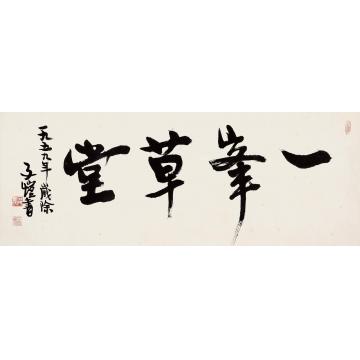 一峯草堂
一九五九年 歲除
子愷書